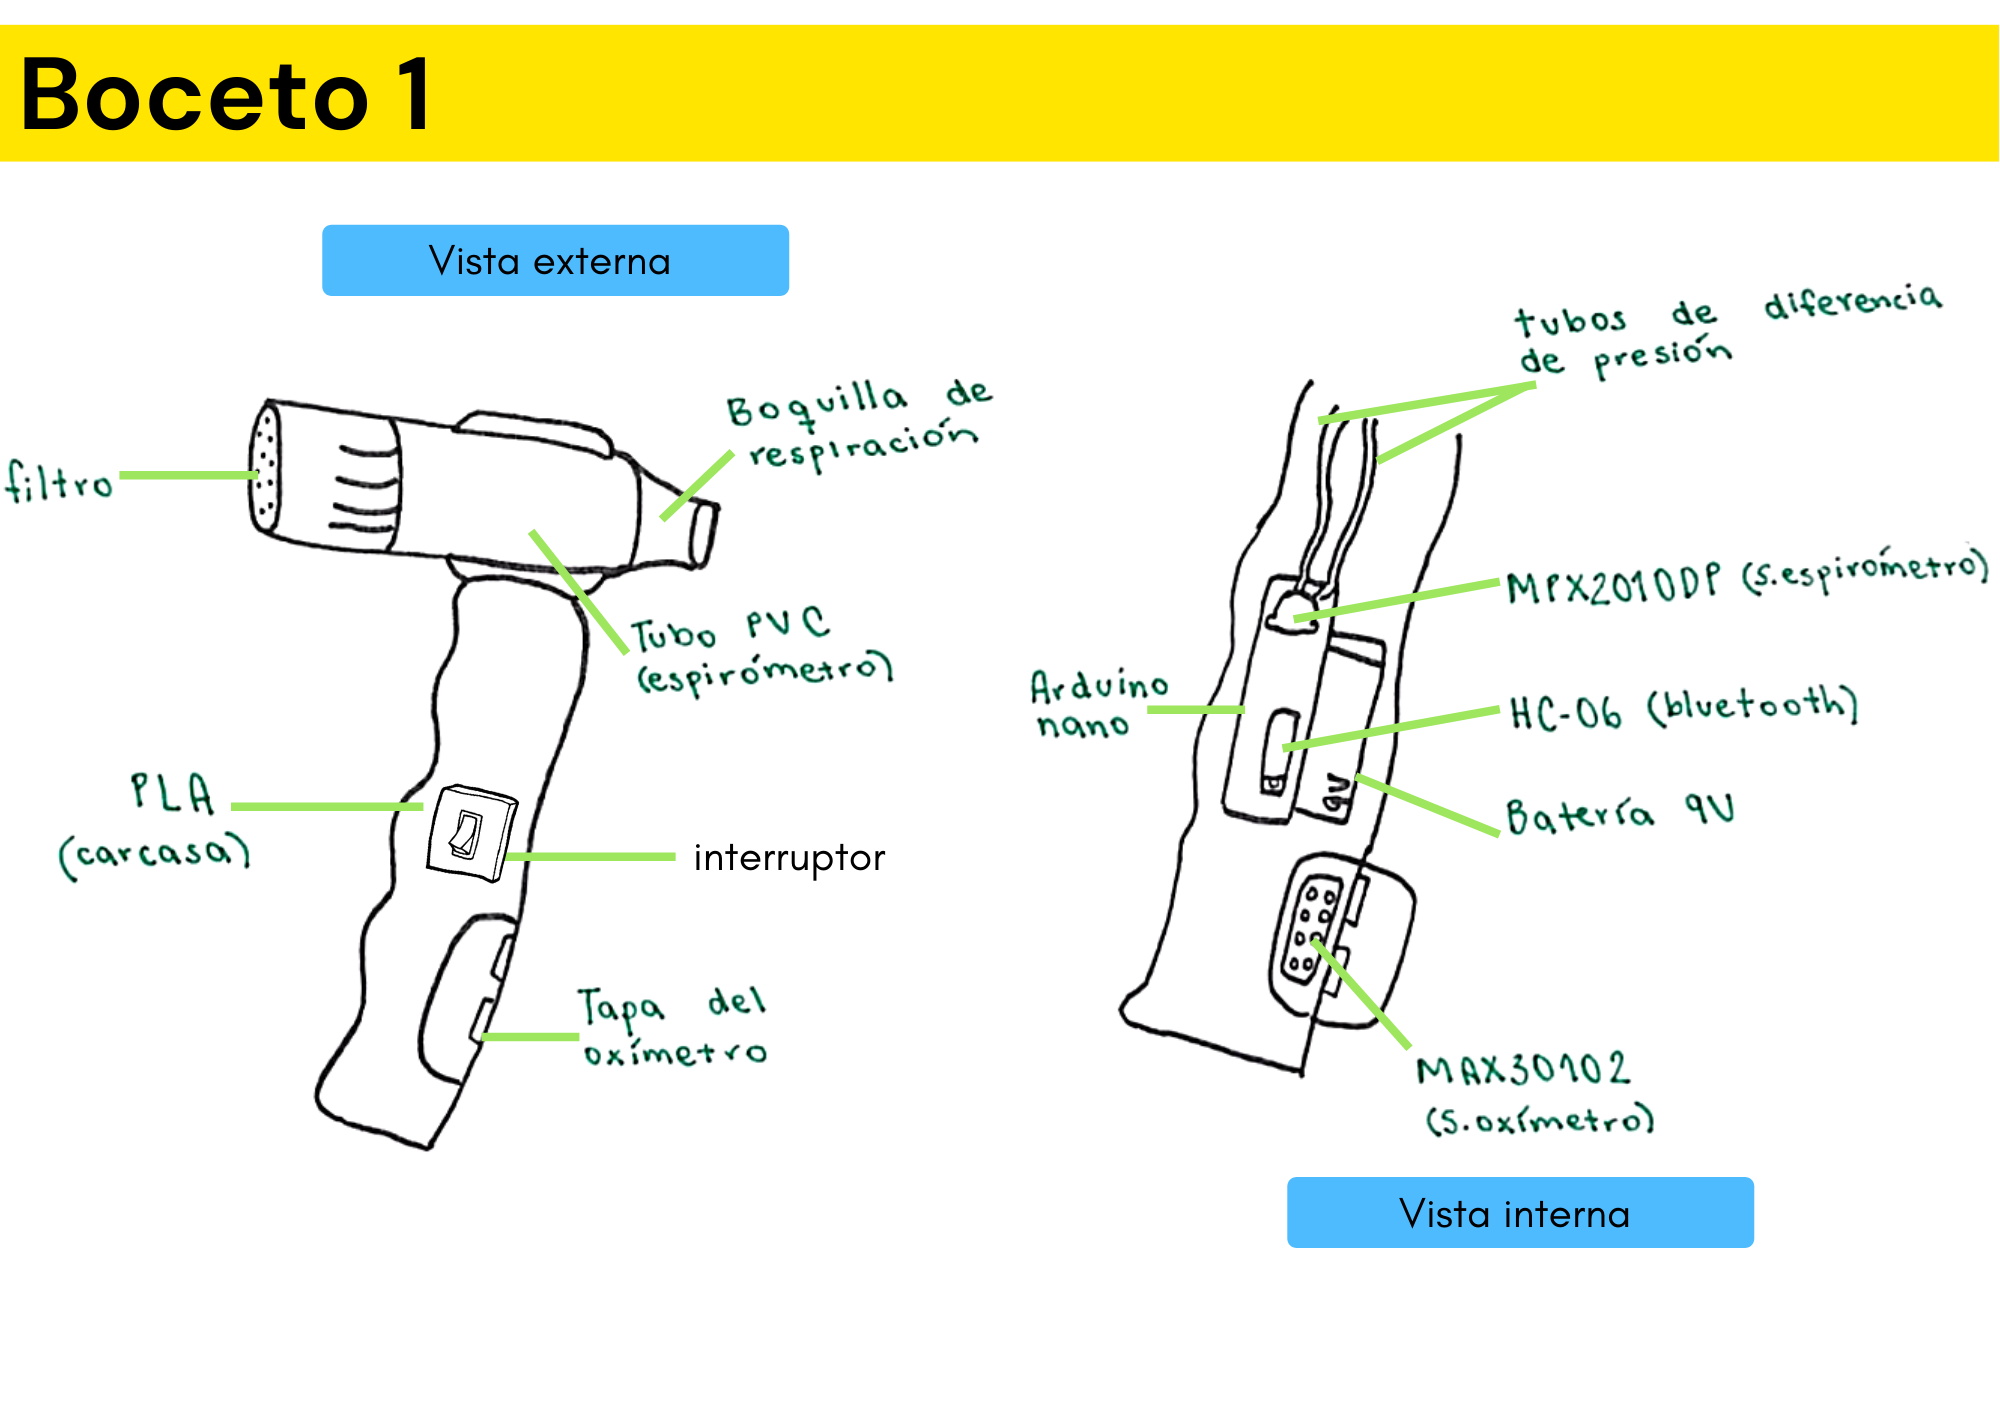 Boceto 1
Vista externa
filtro
Boquilla de
respiración
Tubo PVC
(espirómetro)
PLA
(carcasa)
interruptor
Tapa del
oxímetro
tubos de diferencia
de presión
MPX2010DP (s.espirómetro)
Arduino
nano
HC-06 (bluetooth)
9V
Batería 9V
MAX30102
(S.oxímetro)
Vista interna